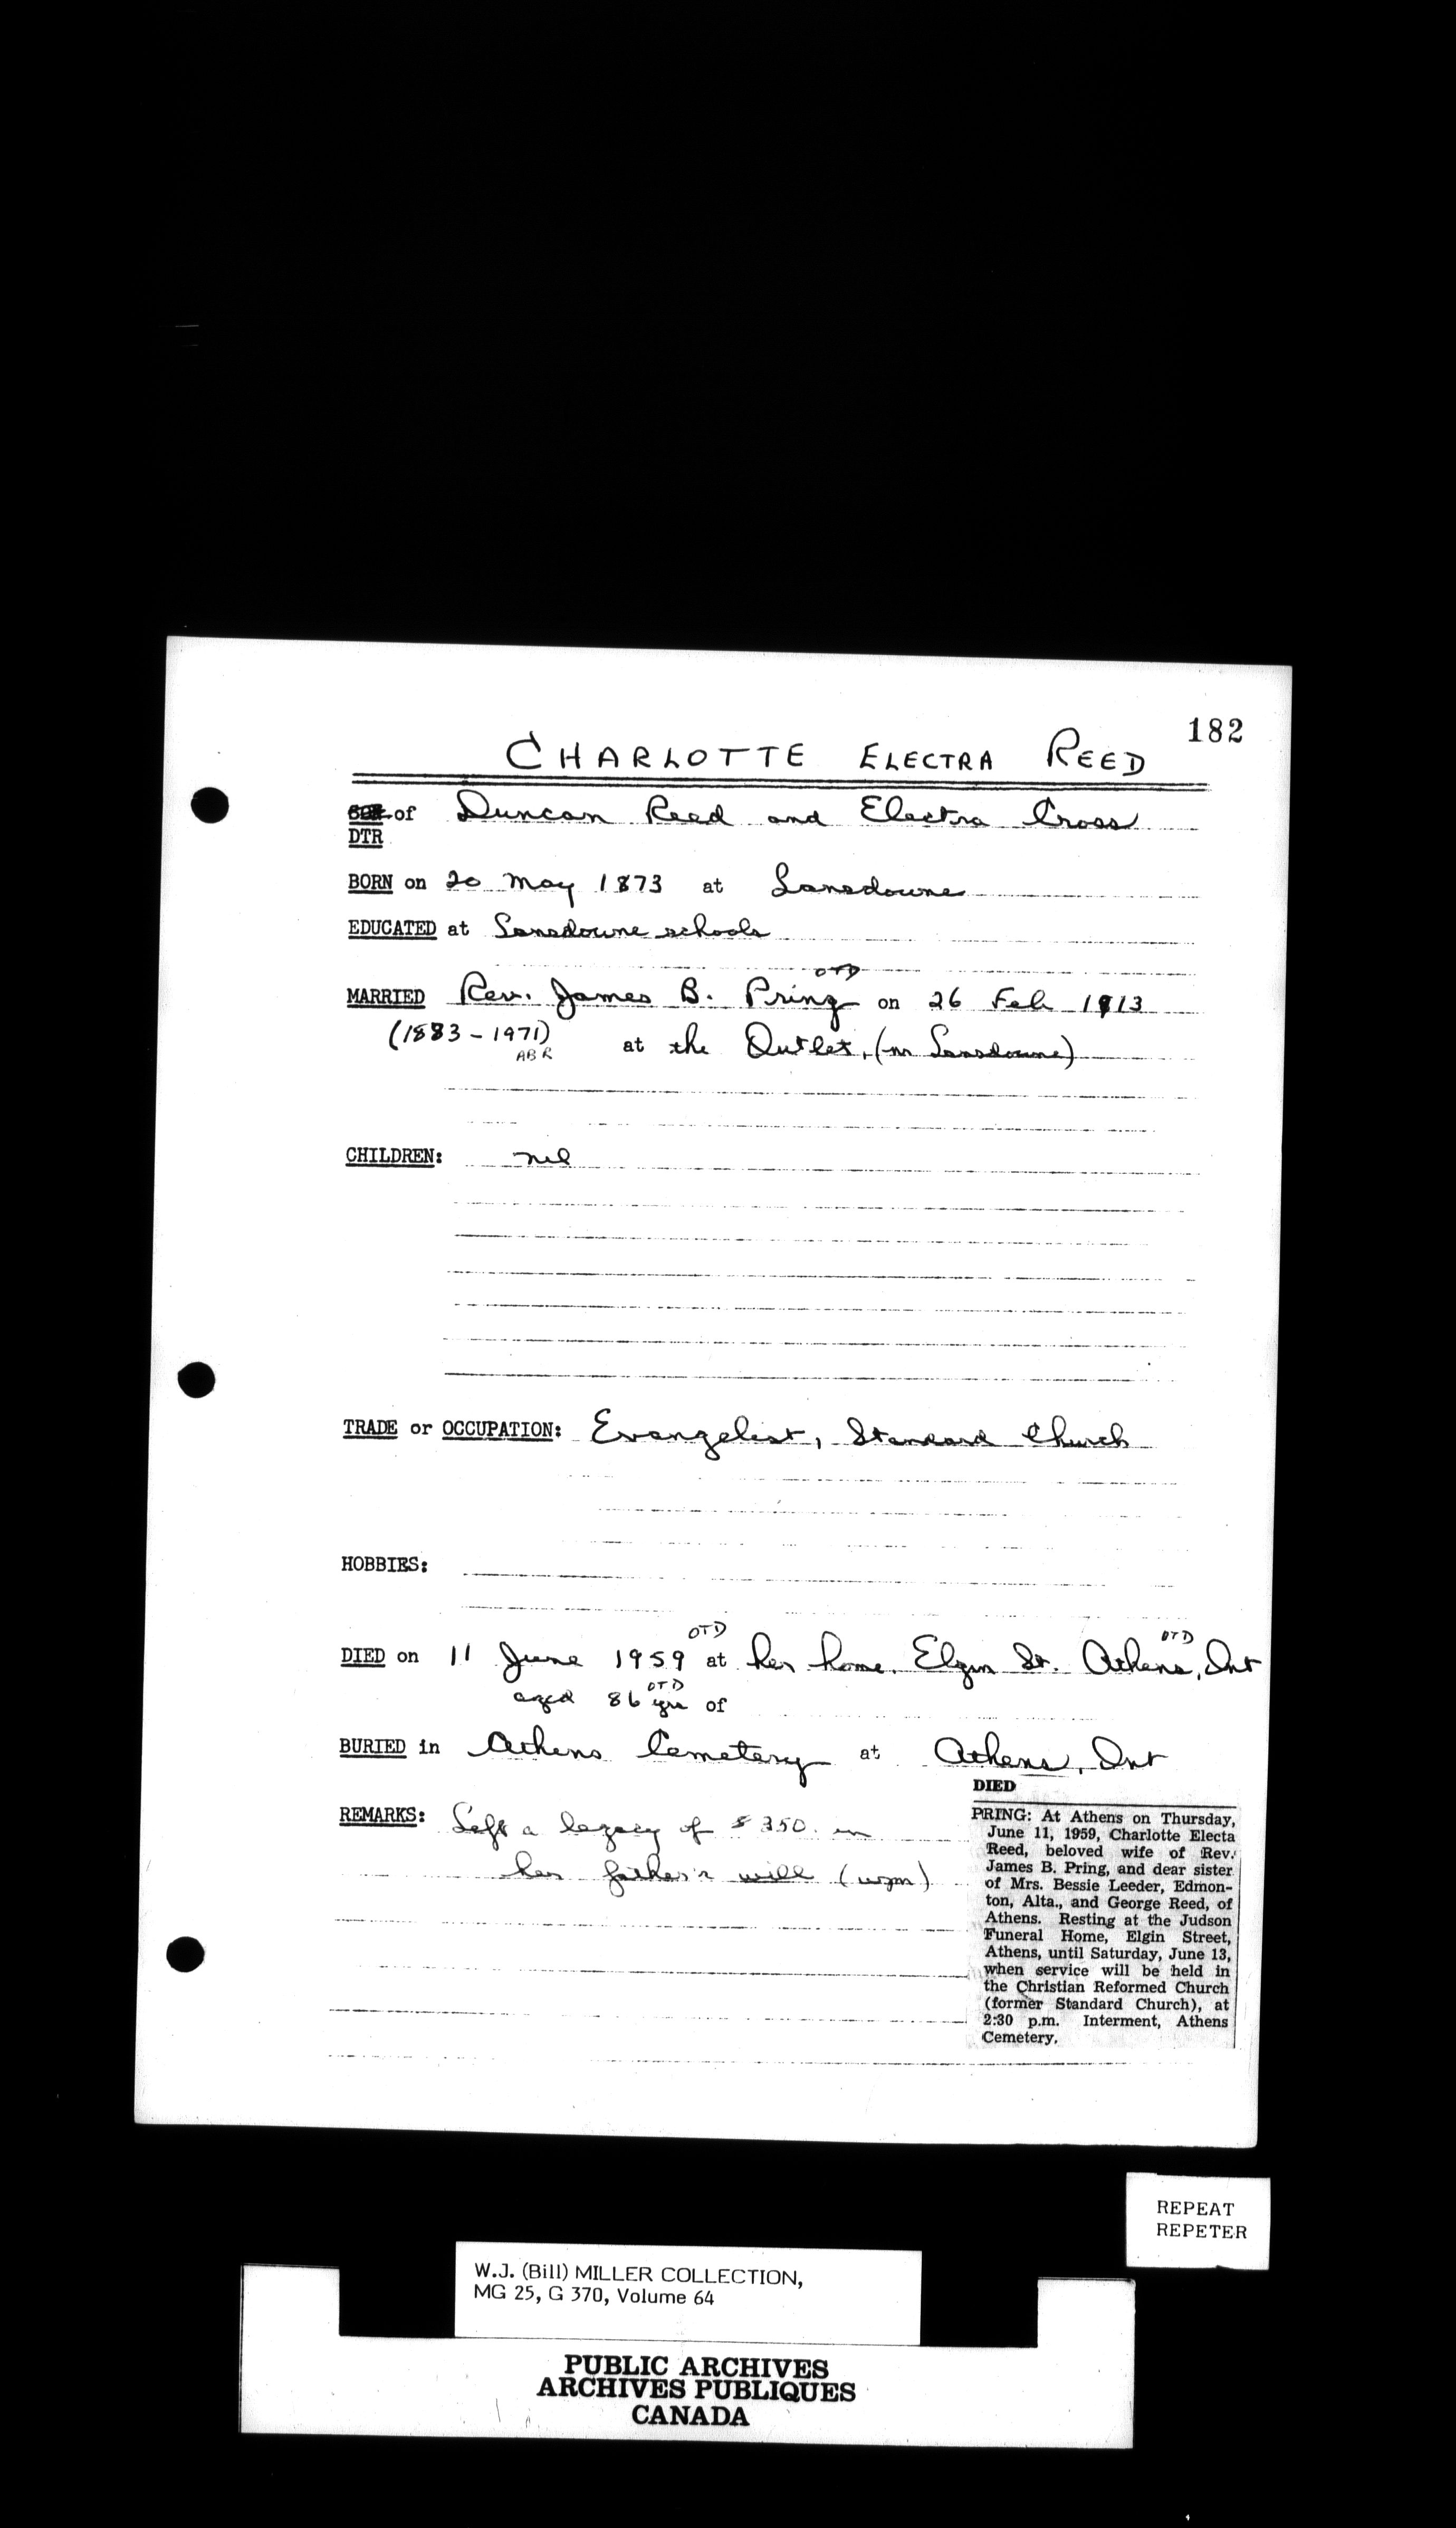 182
CHARLOTTE ELECTRA REED
of Duncan Reed and Electra Cross
DTR
BORN on 20 May 1873 at Lansdowne
EDUCATED at Lansdowne schools
OTD
MARRIED Rev. James B. Pring on 26 Feb 1913
(1883-1971) at the Outlet, (nr Lansdowne)
ABR
CHILDREN: nil
TRADE or OCCUPATION: Evangelist, Standard Church
HOBBIES:
OTD OTD
DIED on 11 June 1959 at her home, Elgin St. Athens, Ont
OTD
aged 86 yrs of
BURIED in Athens Cemetery at Athens, Ont
REMARKS: Left a legacy of $ 350. in
her father's will (wjm)
DIED
PRING: At Athens on Thursday,
June 11, 1959, Charlotte Electa
Reed, beloved wife of Rev.
James B. Pring, and dear sister
of Mrs. Bessie Leeder, Edmon-
ton, Alta., and George Reed, of
Athens. Resting at the Judson
Funeral Home, Elgin Street,
Athens, until Saturday, June 13,
when service will be held in
the Christian Reformed Church
(former Standard Church), at
2:30 p.m. Interment, Athens
Cemetery.
REPEAT
REPETER
W.J. (Bill) MILLER COLLECTION,
MG 25, G 370, Volume 64
PUBLIC ARCHIVES
ARCHIVES PUBLIQUES
CANADA